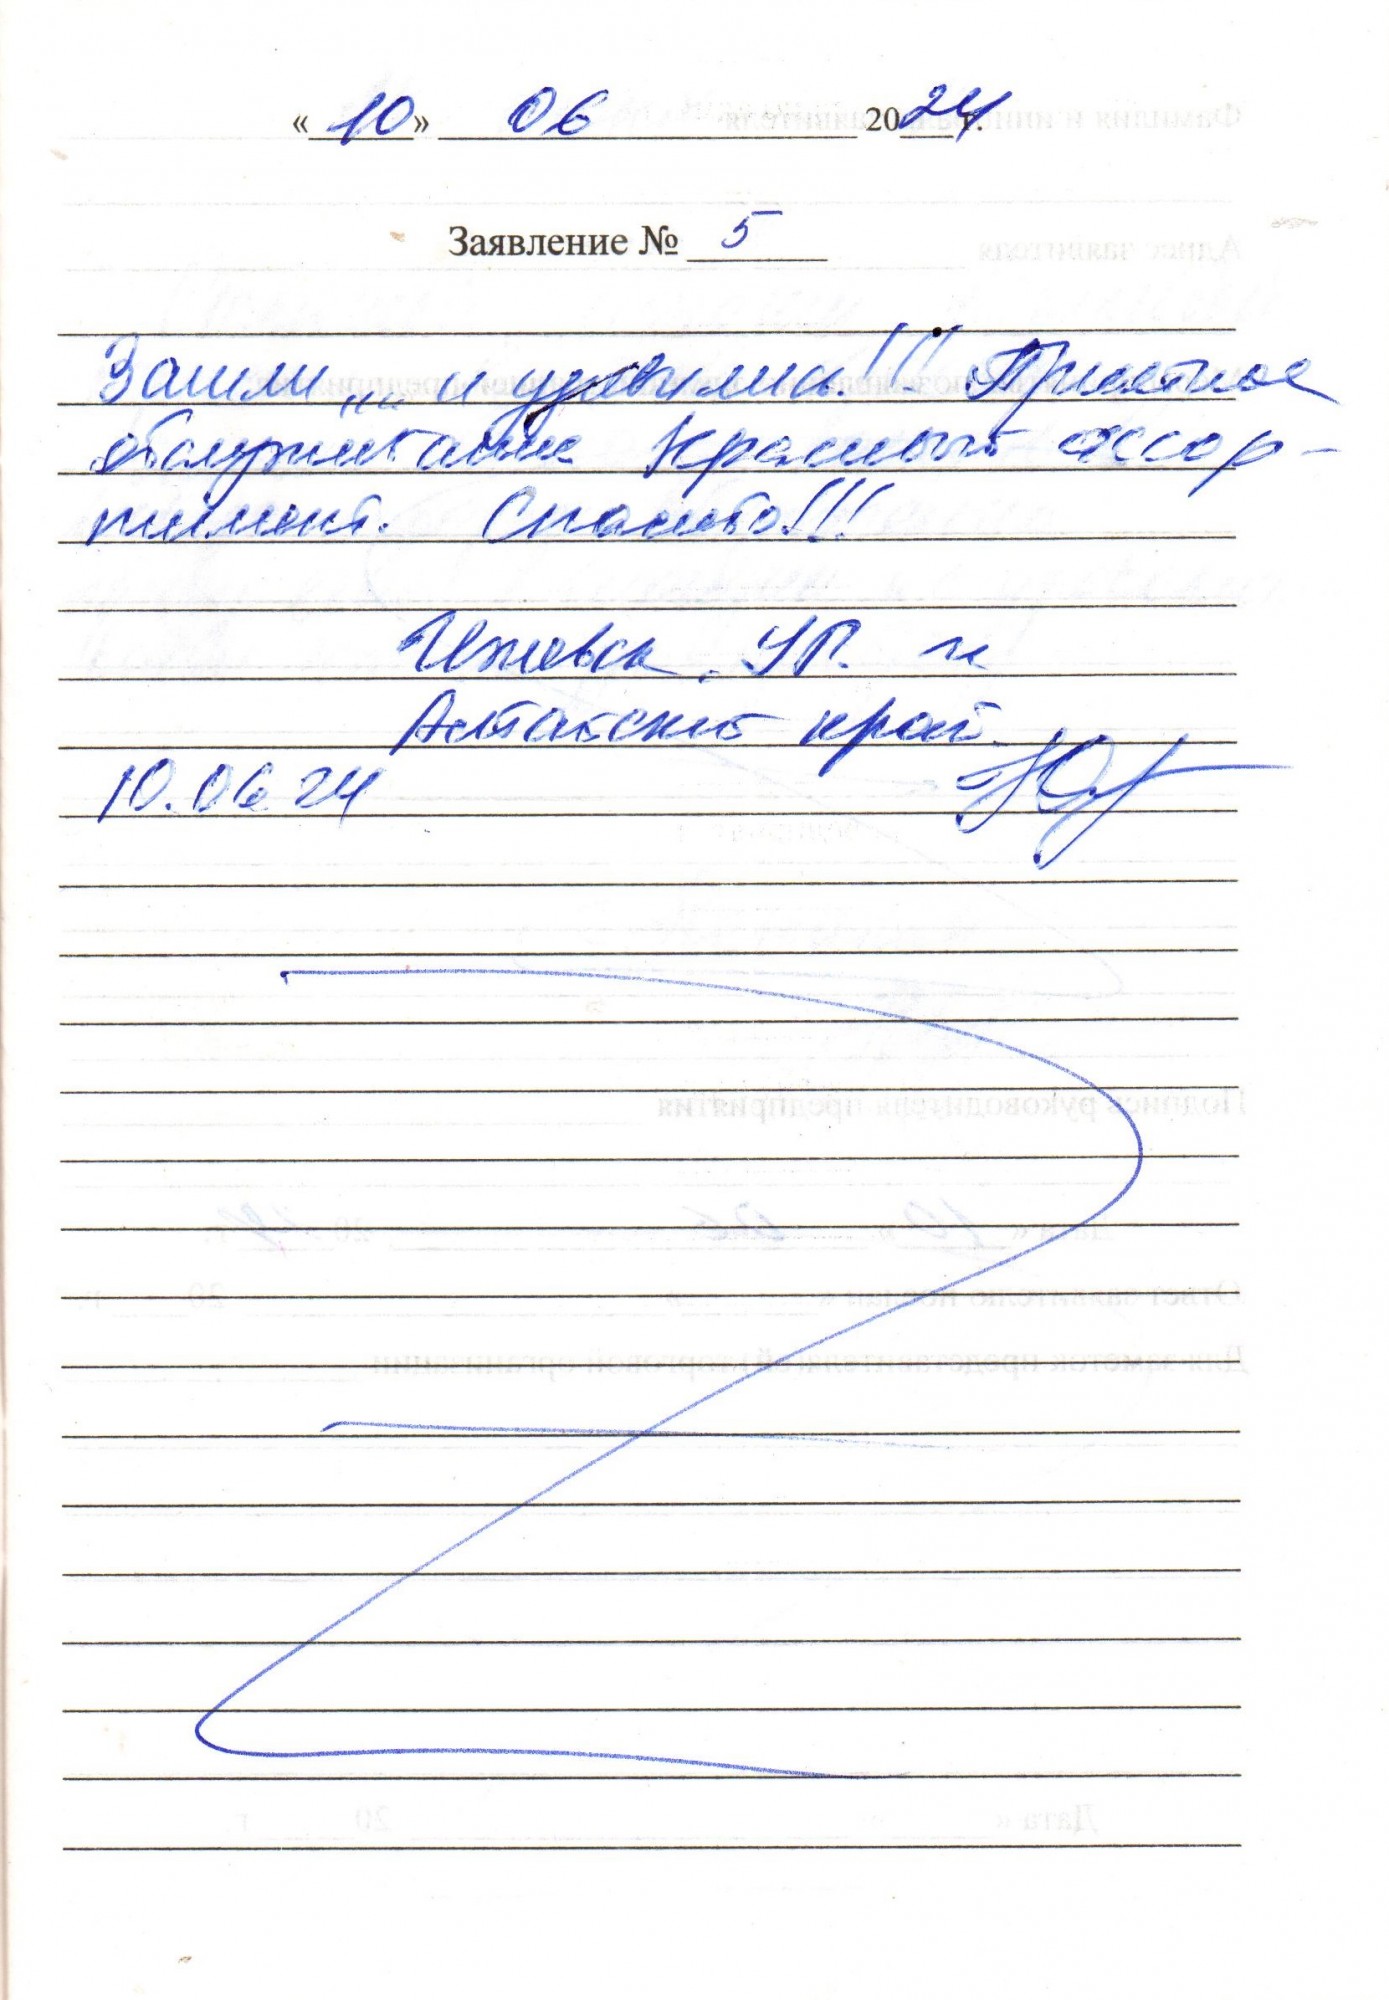 « 10 » 06 2024 г.
Заявление № 5
Зашли... и удивились!!! Приятное
обслуживание Красивый ассор-
тимент. Спасибо!!!
Ижевск, УР. и
Алтайский край.
10.06.24